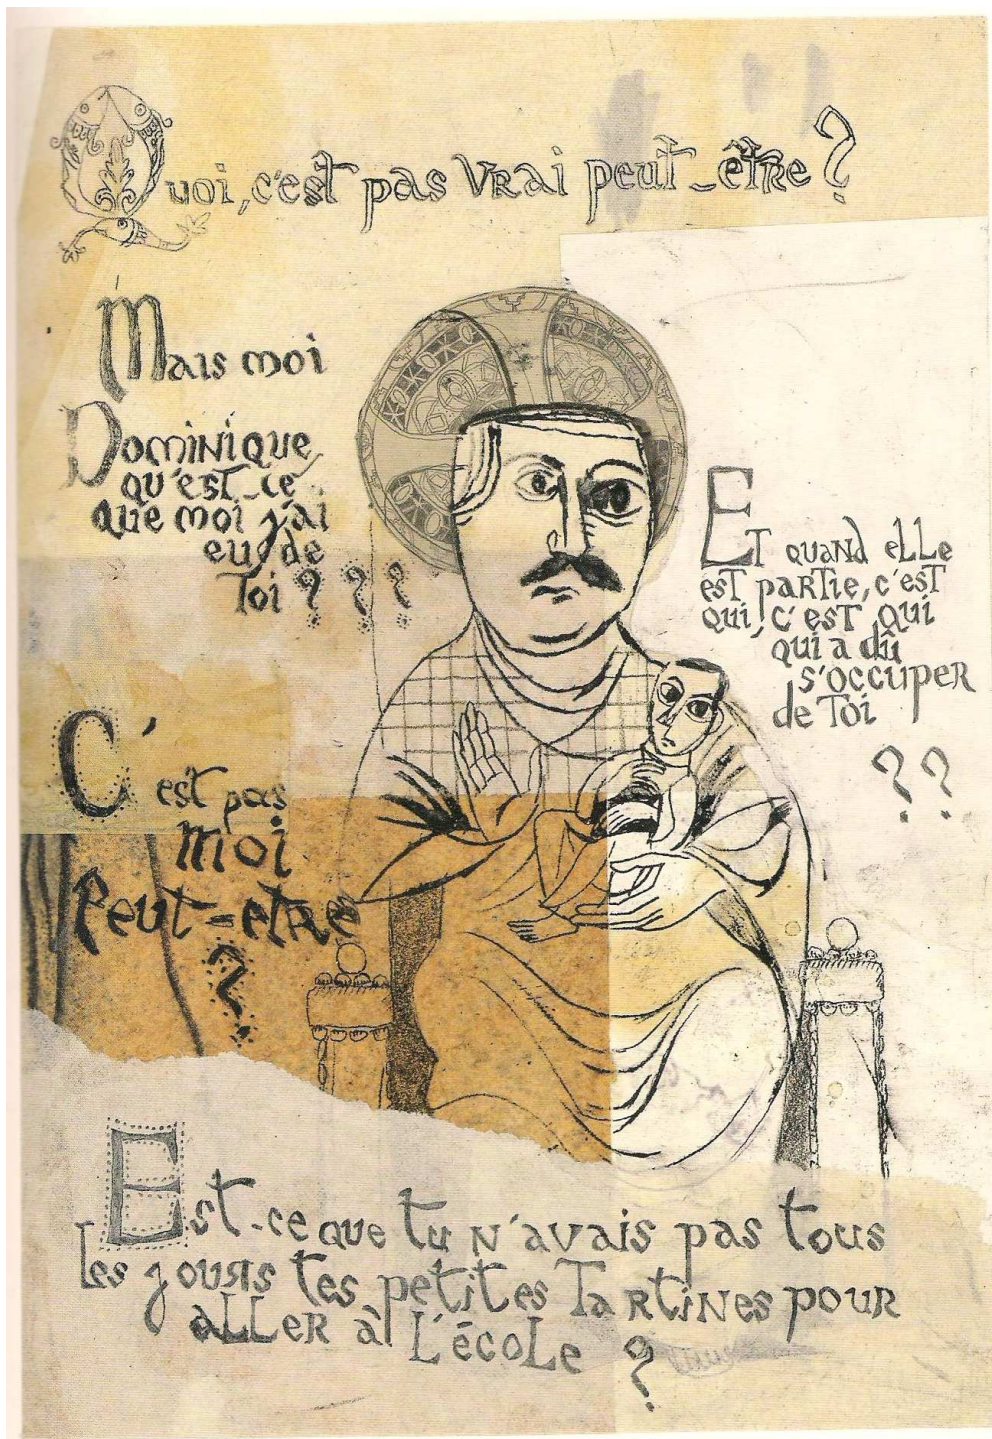 Quoi, c'est pas vrai peut-être ?
Mais moi
Dominique
qu'est-ce
que moi j'ai
eu, de
Toi ? ? ?
Et quand elle
est partie, c'est
qui, c'est qui
qui a dû
s'occuper
de Toi
? ?
C'est pas
moi
Peut-etre
?
Est-ce que tu n'avais pas tous
les jours tes petites Tartines pour
aller à l'école ?